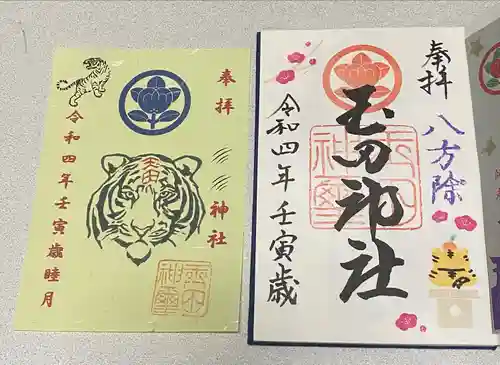 奉拝
神社
寅
令和四年壬寅歳睦月
奉拝
八方除
玉田神社
令和四年壬寅歳